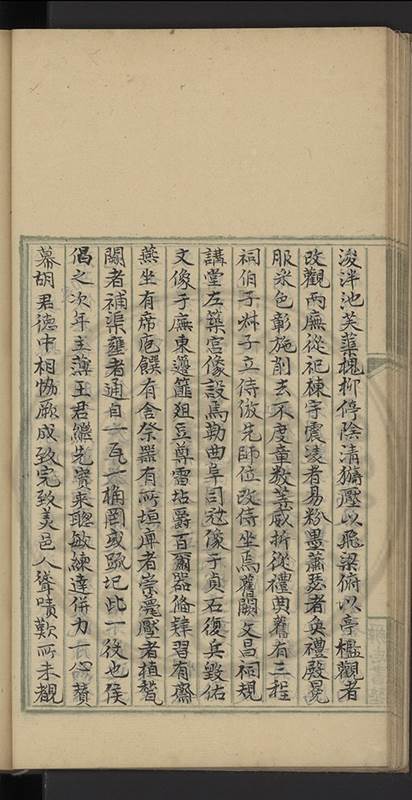 浚泮池芙蕖槐柳停陰清漪壓以飛梁俯以亭檻觀者
改觀兩廡從祀棟宇震凌者易粉墨蕭瑟者奐禮殿冕
服采色彰施削去不度章數等威折從禮典舊有三程
祠伯子叔子立侍倣先師位改侍坐焉舊闕文昌祠規
講堂左築宮像設焉勒曲阜司冠像于貞石復兵毀佑
文像于廡東籩簠俎豆尊罍坫爵百爾器備肄習有齋
燕坐有席庖饌有舍祭器有所垣庳者崇甍壓者植甃
闕者補渠壅者通自一瓦一桷罔或疏圮此一役也侯
倡之次年主薄王君繼先實來聰敏練達併力一心贊
幕胡君德中相協厥成致完致美邑人聳嘖歎所未覩